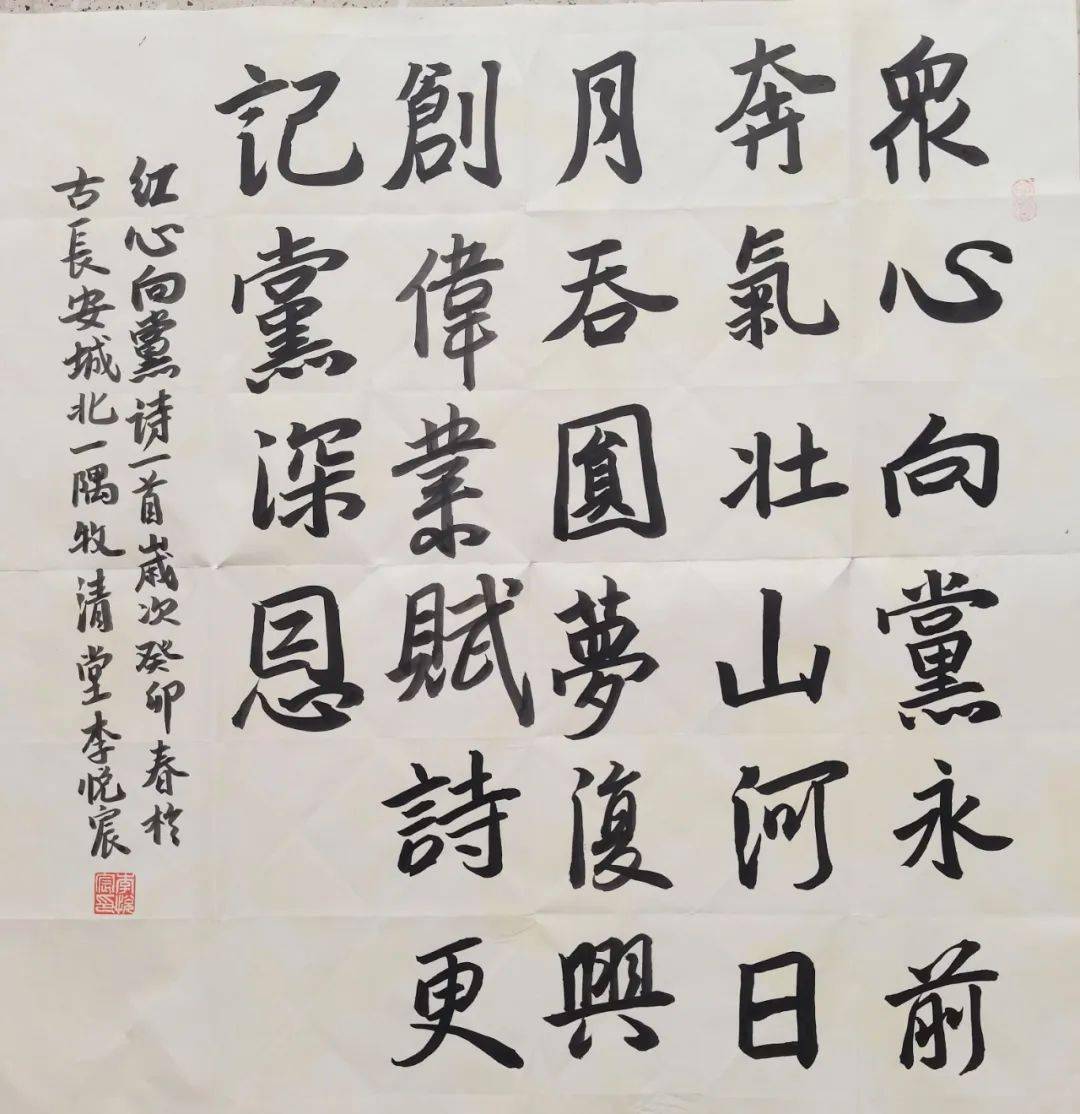 眾心向黨永前
奔氣壯山河日
月吞圓夢復興
創偉業賦詩更
記黨深恩
红心向黨诗一首歲次癸卯春於
古長安城北一隅牧清堂李悦宸